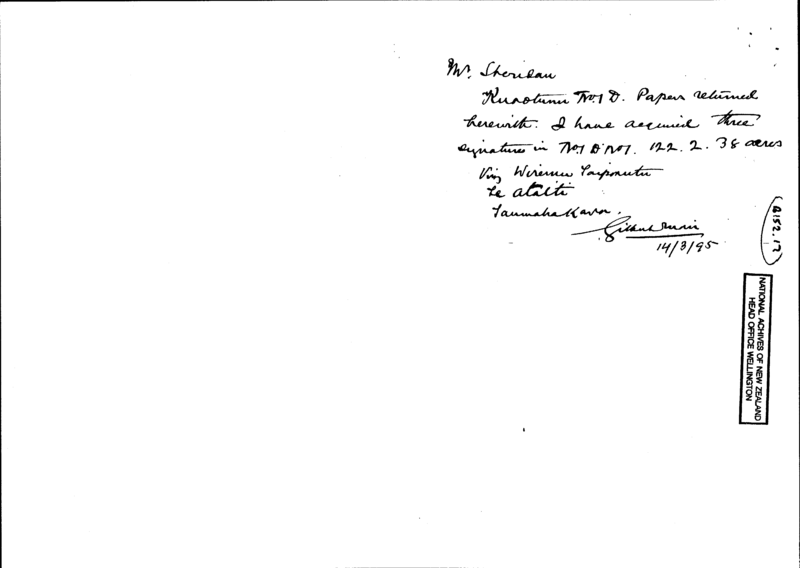 Mr. Sheridan
Kuaotunu No. 1 D. Papers returned
herewith. I have acquired three
signatures in No. 1 D No 1. 122. 2. 38 acres
Viz Wiremu
Te
14/3/95
NATIONAL ACHIVES OF NEW ZEALAND
HEAD OFFICE WELLINGTON